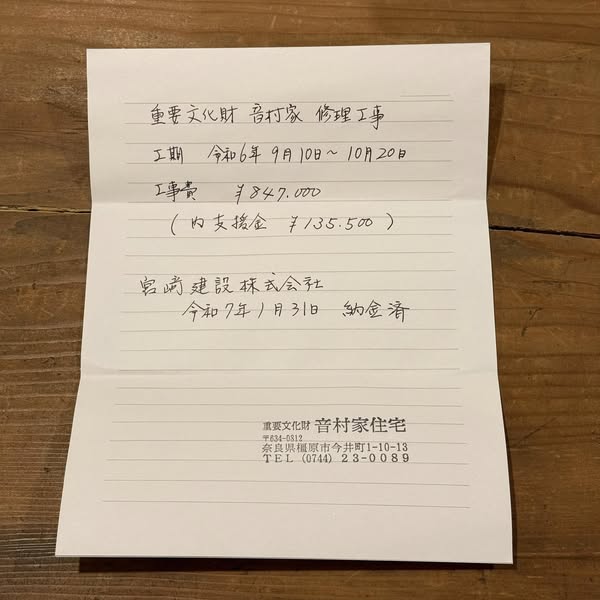 重要文化財 音村家 修理工事
工期 令和6年9月10日~10月20日
工事費 ¥847.000
(内支援金 ¥135.500)
宮﨑建設株式会社
令和7年1月31日 納金済
重要文化財 音村家住宅
〒634-0812
奈良県橿原市今井町1-10-13
TEL (0744) 23-0089